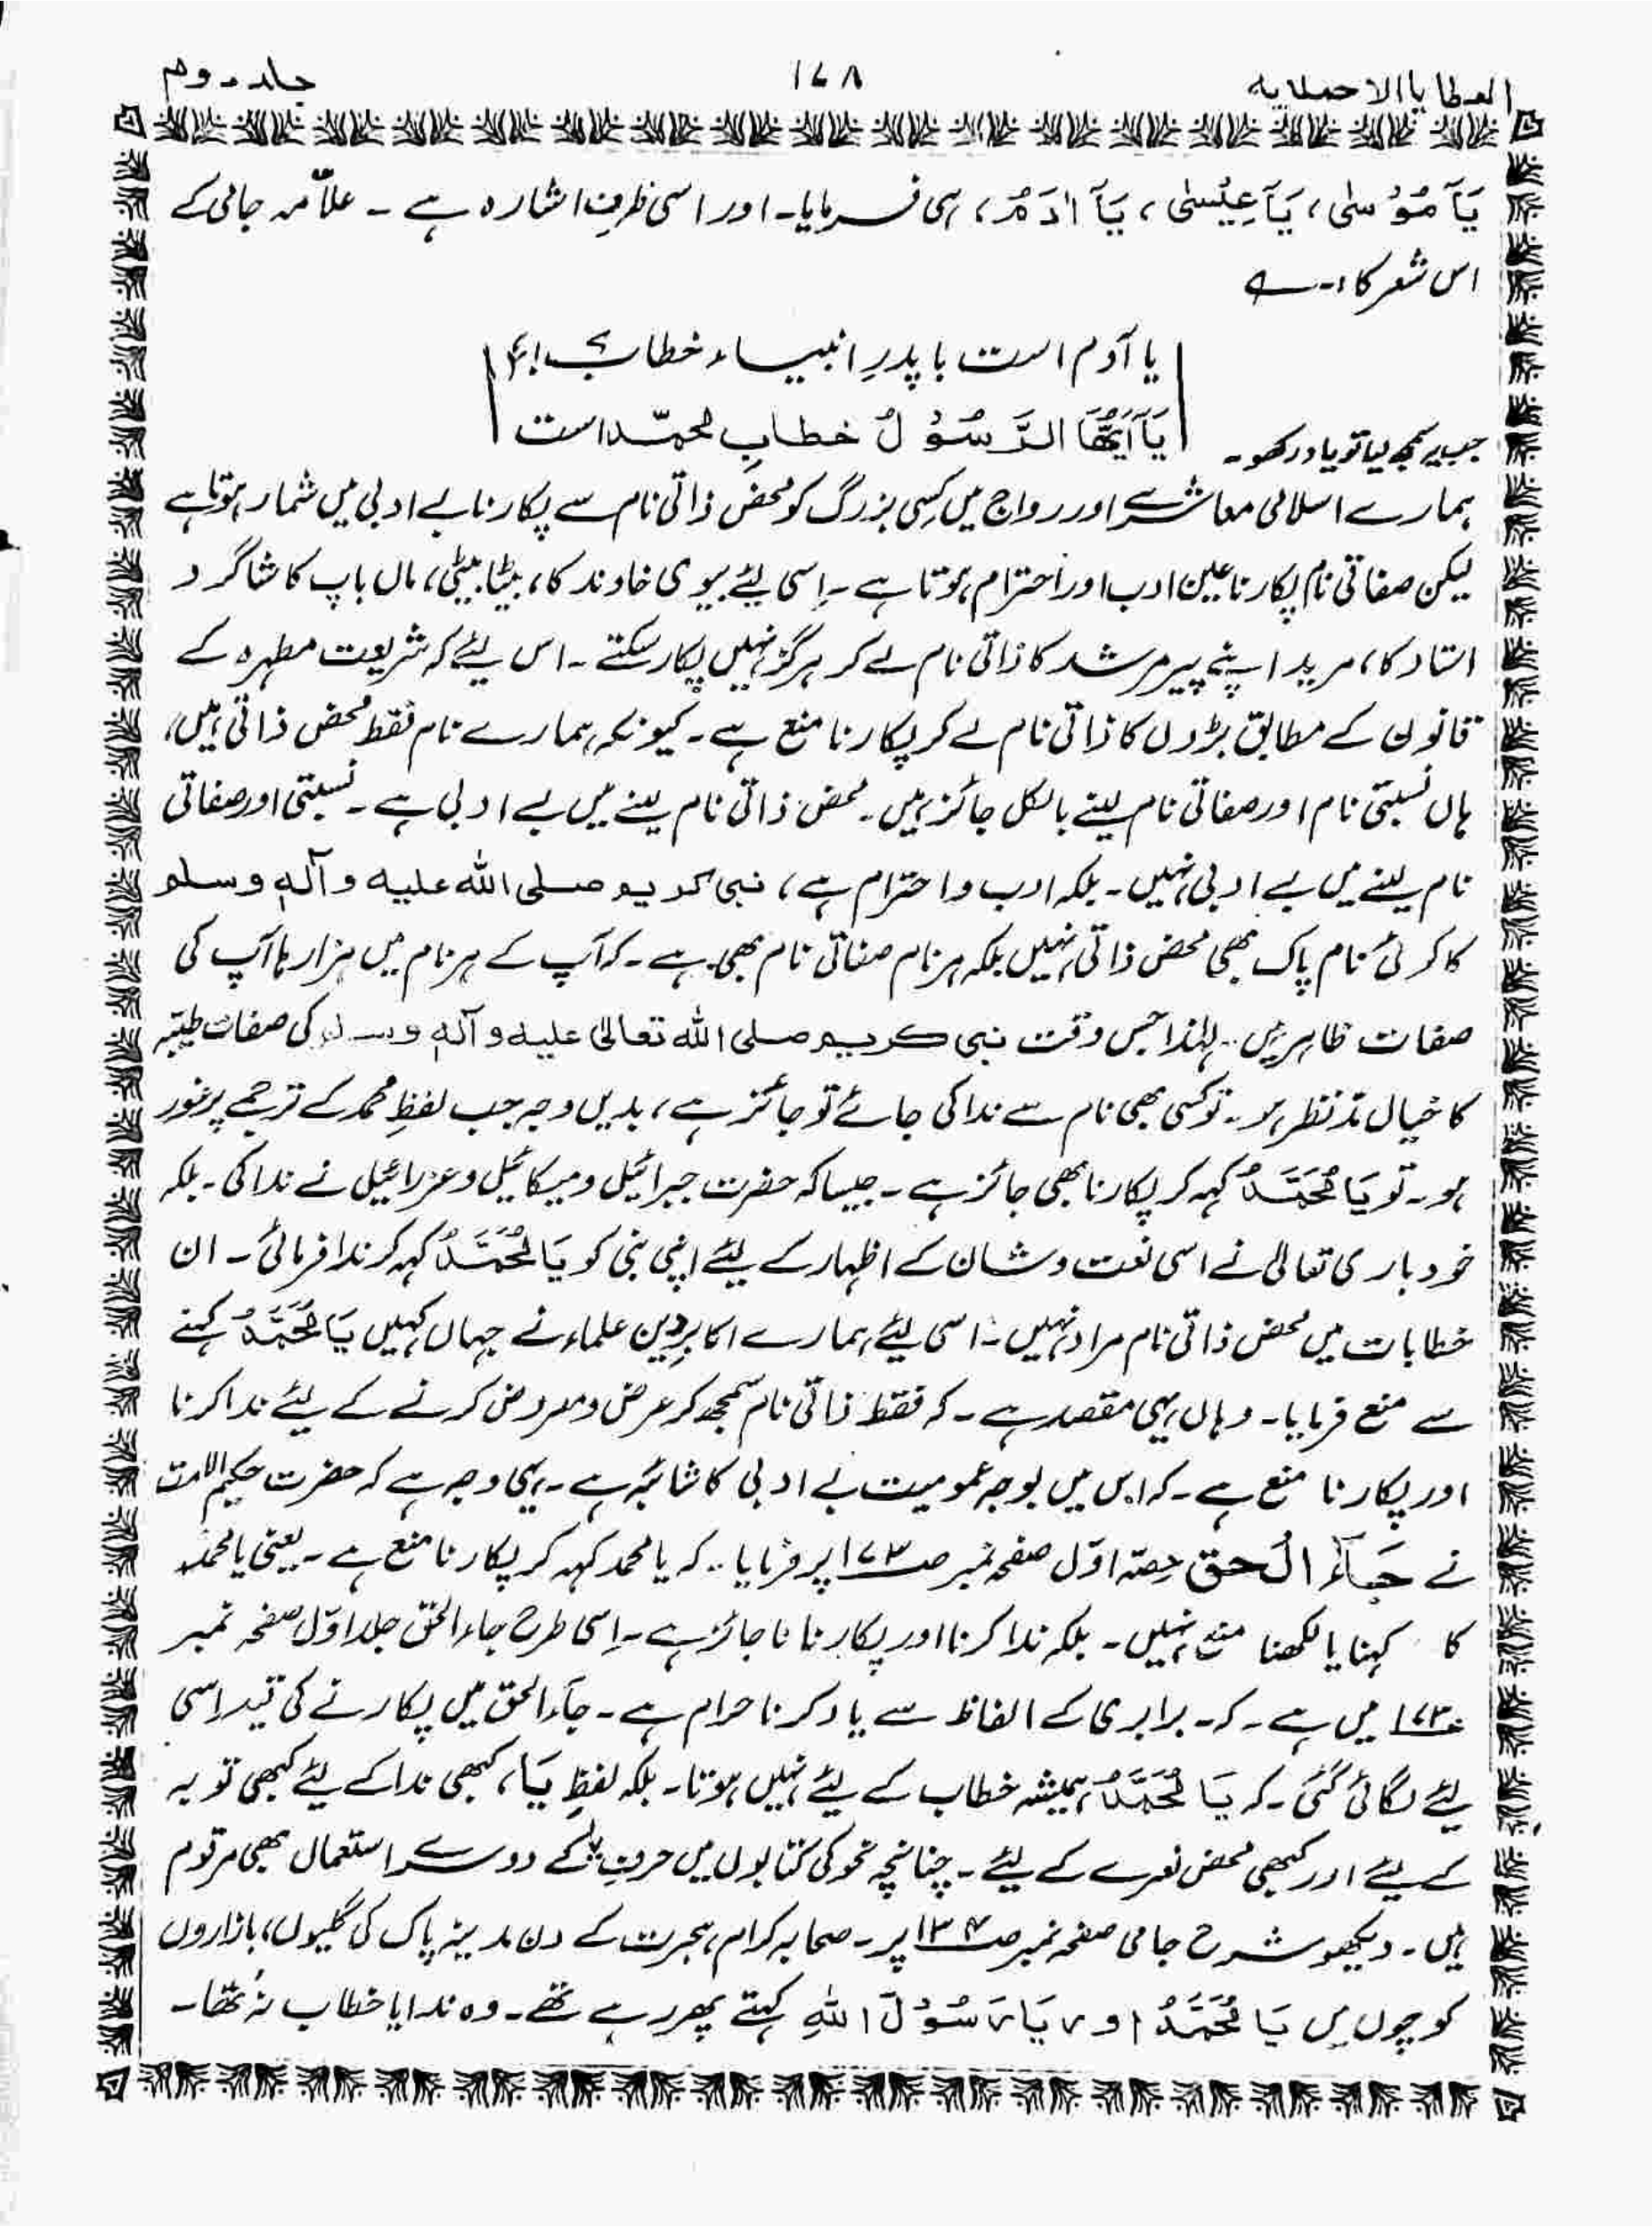 العطایا الاحمدیہ
۱۷۸
جلد دوم
یَآ مُوْسٰی، یَآ عِیْسٰی، یَآ اٰدَمُ، ہی فرمایا۔ اور اسی طرف اشارہ ہے ۔ علاّمہ جامی کے
اس شعر کا :۔ ؎
یا آدم است با پدرِ انبیاء خطاب
یَآ اَیُّھَا الرَّسُوْلُ خطابِ محمّد است
جب یہ سمجھ لیا تو یاد رکھو ۔
ہمارے اسلامی معاشرے اور رواج میں کسِی بزرگ کو محض ذاتی نام سے پکارنا بے ادبی میں شمار ہوتا ہے
لیکن صفاتی نام پکارنا عین ادب اور احترام ہوتا ہے ۔ اِسی لیٔے بیوی خاوند کا، بیٹا بیٹی، ماں باپ کا شاگرد
استاد کا، مرید اپنے پیر مرشد کا ذاتی نام لے کر ہرگز نہیں پکار سکتے ۔ اس لیٔے کہ شریعت مطہرہ کے
قانون کے مطابق بڑوں کا ذاتی نام لے کر پکارنا منع ہے ۔ کیونکہ ہمارے نام فقط محض ذاتی ہیں،
ہاں نسبتی نام اور صفاتی نام لینے بالکل جائز ہیں ۔ محض ذاتی نام لینے میں بے ادبی ہے ۔ نسبتی اور صفاتی
نام لینے میں بے ادبی نہیں ۔ بلکہ ادب و احترام ہے، نبی کریم صلی اللہ علیہ و آلہٖ وسلم
کا کوئی نام پاک بھی محض ذاتی نہیں بلکہ ہر نام صفاتی نام بھی ہے ۔ کہ آپ کے ہر نام میں ہزارہا آپ کی
صفات ظاہر ہیں ۔ لہٰذا جس وقت نبی کریم صلی اللہ تعالیٰ علیہ و آلہٖ وسلم کی صفات طیّبہ
کا خیال مدّنظر ہو ۔ تو کسی بھی نام سے ندا کی جائے تو جائز ہے، بدیں وجہ جب لفظِ محمد کے ترجمے پر غور
ہو ۔ تو یَا مُحَمَّدُ کہہ کر پکارنا بھی جائز ہے ۔ جیسا کہ حضرت جبرائیل و میکائیل و عزرائیل نے ندا کی ۔ بلکہ
خود باری تعالٰی نے اسی نعت و شان کے اظہار کے لیٔے اپنی نبی کو یَا مُحَمَّدُ کہہ کر ندا فرمائی ۔ ان
خطابات میں محض ذاتی نام مراد نہیں ۔ اسی لیٔے ہمارے اکابرِدین علماء نے جہاں کہیں یَا مُحَمَّدُ کہنے
سے منع فرمایا ۔ وہاں یہی مقصد ہے ۔ کہ فقط ذاتی نام سمجھ کر عرض و معروض کرنے کے لیٔے ندا کرنا
اور پکارنا منع ہے ۔ کہ اس میں بوجہ عمومیت بے ادبی کا شائبہ ہے ۔ یہی وجہ ہے کہ حضرت حکیم الامت
نے جَآءَ الْحق حصّہ اوّل صفحہ نمبر صـ۱۷۳ پر فرمایا ۔ کہ یا محمد کہہ کر پکارنا منع ہے ۔ یعنی یا محمد
کا کہنا یا لکھنا منع نہیں ۔ بلکہ ندا کرنا اور پکارنا ناجائز ہے ۔ اِسی طرح جاء الحق جلد اوّل صفحہ نمبر
۱۷۳ میں ہے ۔ کہ ۔ برابری کے الفاظ سے یاد کرنا حرام ہے ۔ جآء الحق میں پکارنے کی قید اسی
لیٔے لگائی گئی ۔ کہ یَا مُحَمَّدُ ہمیشہ خطاب کے لیٔے نہیں ہوتا ۔ بلکہ لفظِ یَا، کبھی ندا کے لیٔے کبھی توبہ
کے لیٔے اور کبھی محض نعرے کے لیٔے ۔ چنانچہ نحو کی کتابوں میں حرفِ یا کے دوسرے استعمال بھی مرقوم
ہیں ۔ دیکھو شرح جامی صفحہ نمبر صـ۱۳۴ پر ۔ صحابہ کرام ہجرت کے دن مدینہ پاک کی گلیوں، بازاروں
کوچوں میں یَا مُحَمَّدُ اور یَا رَسُوْلَ اللہِ کہتے پھر رہے تھے ۔ وہ ندا یا خطاب نہ تھا ۔